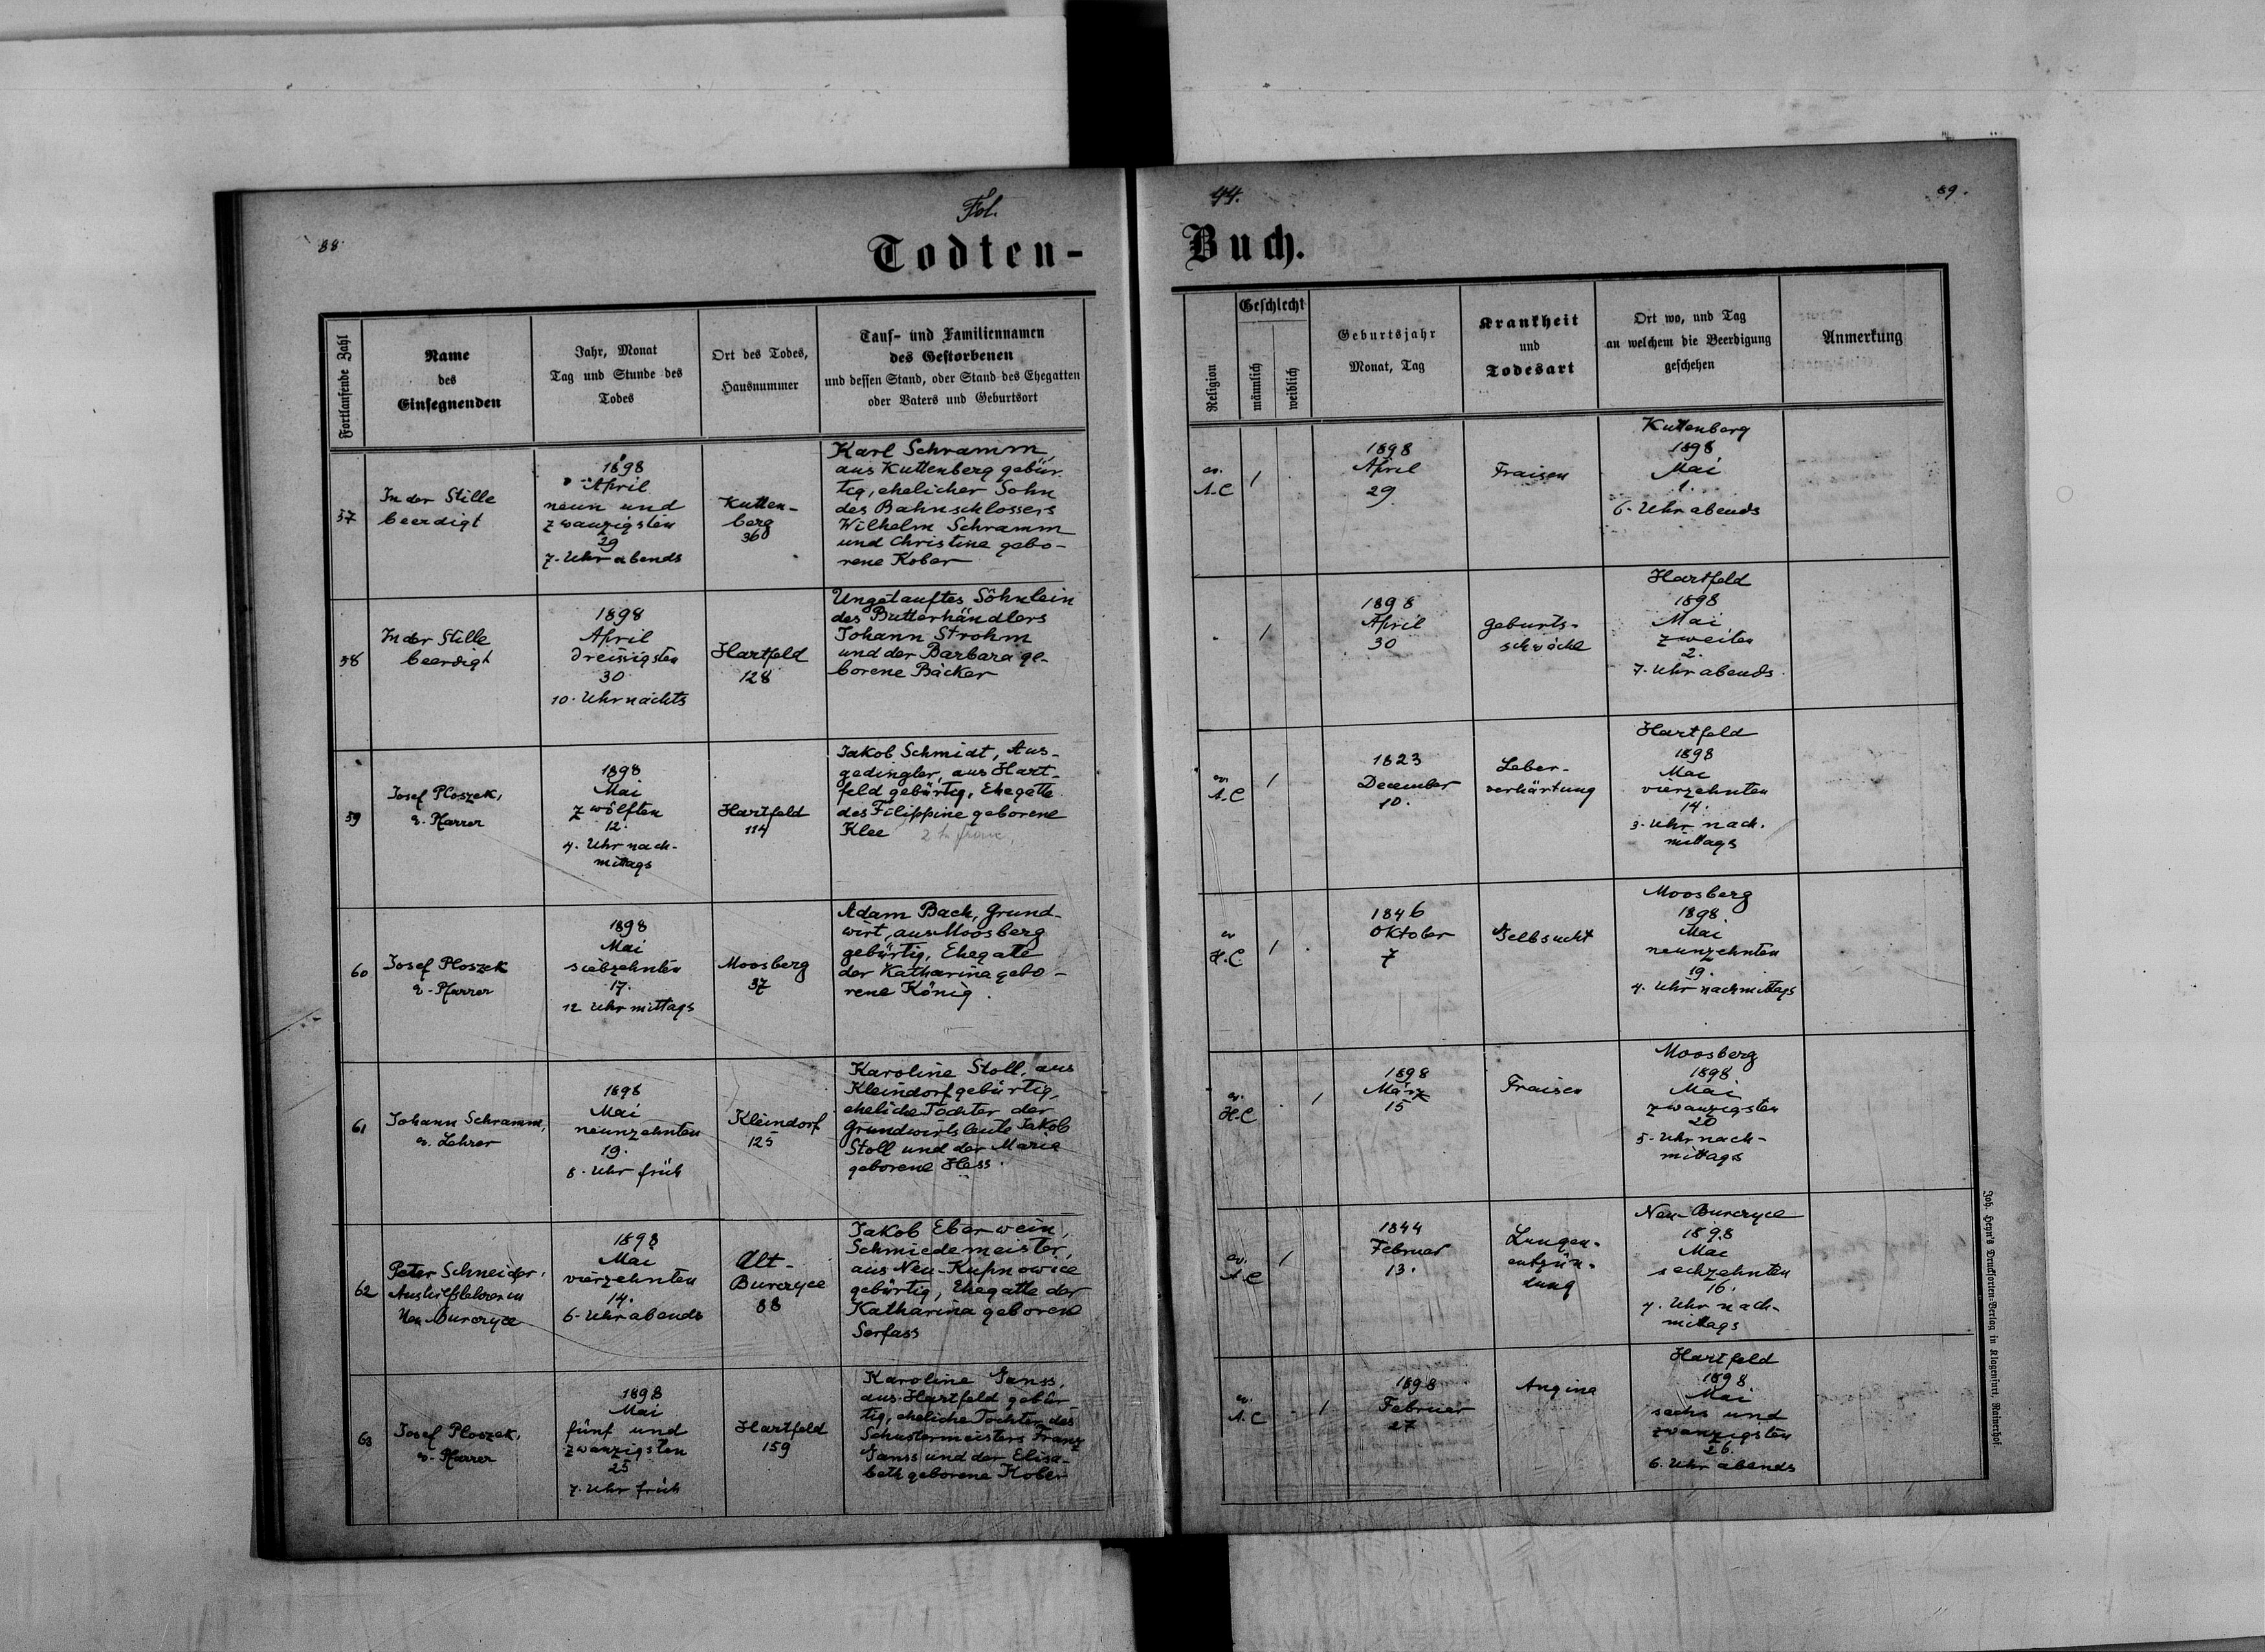 Fol.
44.
88
89.
Todten-
Buch.
Fortlaufende Zahl
Name
des
Einsegnenden
Jahr, Monat
Tag und Stunde des
Todes
Ort des Todes,
Hausnummer
Tauf- und Familiennamen
des Gestorbenen
und dessen Stand, oder Stand des Ehegatten
oder Vaters und Geburtsort
Religion
Geschlecht
männlich
weiblich
Geburtsjahr
Monat, Tag
Krankheit
und
Todesart
Ort wo, und Tag
an welchem die Beerdigung
geschehen
Anmerkung
57
In der Stille
beerdigt
1898
April
neun und
zwanzigsten
29
7. Uhr abends
Kutten-
berg
36
Karl Schramm,
aus Kuttenberg gebür
tig, ehelicher Sohn
des Bahnschlossers
Wilhelm Schramm
und Christine gebo-
rene Kober
ev.
A.C
1
1898
April
29
Fraisen
Kuttenberg
1898
Mai
1.
6. Uhr abends
58
In der Stille
beerdigt
1898
April
dreissigsten
30
10. Uhr nachts
Hartfeld
128
Ungetauftes Söhnlein
des Butterhändlers
Johann Strohm
und der Barbara ge-
borene Bäcker
1
1898
April
30
Geburts-
schwäche
Hartfeld
1898
Mai
zweiten
2.
7. Uhr abends
59
Josef Ploszek,
ev. Pfarrer
1898
Mai
zwölften
12.
4. Uhr nach-
mittags
Hartfeld
114
Jakob Schmidt, Aus-
gedingler, aus Hart-
feld gebürtig, Ehegatte
des Filippine geborene
Klee
ev.
A.C
1
1823
December
10.
Leber-
verhärtung
Hartfeld
1898
Mai
vierzehnten
14.
3. Uhr nach.
mittags
60
Josef Ploszek
ev. Pfarrer
1898
Mai
siebzehnten
17.
12 Uhr mittags
Moosberg
37
Adam Bach, Grund-
wirt, aus Moosberg
gebürtig, Ehegatte
der Katharina gebo-
rene König.
ev
H.C.
1
1846
Oktober
7
Gelbsucht
Moosberg
1898
Mai
neunzehnten
19.
4. Uhr nachmittags
61
Johann Schramm,
ev. Lehrer
1898
Mai
neunzehnten
19.
8. Uhr früh
Kleindorf
125
Karoline Stoll, aus
Kleindorf gebürtig,
eheliche Tochter der
Grundwirtsleute Jakob
Stoll und der Maria
geborene Hess.
ev.
H.C
1
1898
März
15
Fraisen
Moosberg
1898
Mai
zwanzigsten
20
5. Uhr nach-
mittags
62
Peter Schneider,
Aushilfslehrer in
Neu-Burczyce
1898
Mai
vierzehnten
14.
6. Uhr abends
Alt-
Burczyce
88
Jakob Eberwein,
Schmiedemeister,
aus Neu-Kupnowice
gebürtig, Ehegatte der
Katharina geborene
Serfass
ev.
A.C
1
1844
Februar
13.
Lungen-
entzün-
dung
Neu-Burczyce
1898
Mai
sechzehnten
16.
4. Uhr nach-
mittags
63
Josef Ploszek,
ev. Pfarrer
1898
Mai
fünf und
zwanzigsten
25
7. Uhr früh
Hartfeld
159
Karoline Janss,
aus Hartfeld gebür-
tig, eheliche Tochter des
Schustermeisters Franz
Janss und der Elisa-
beth geborene Kober
ev.
A.C
1
1898
Februar
27
Angina
Hartfeld
1898
Mai
sechs und
zwanzigsten
26.
6. Uhr abends
Joh. Heyn's Drucksorten-Verlag in Klagenfurt, Rainerhof.